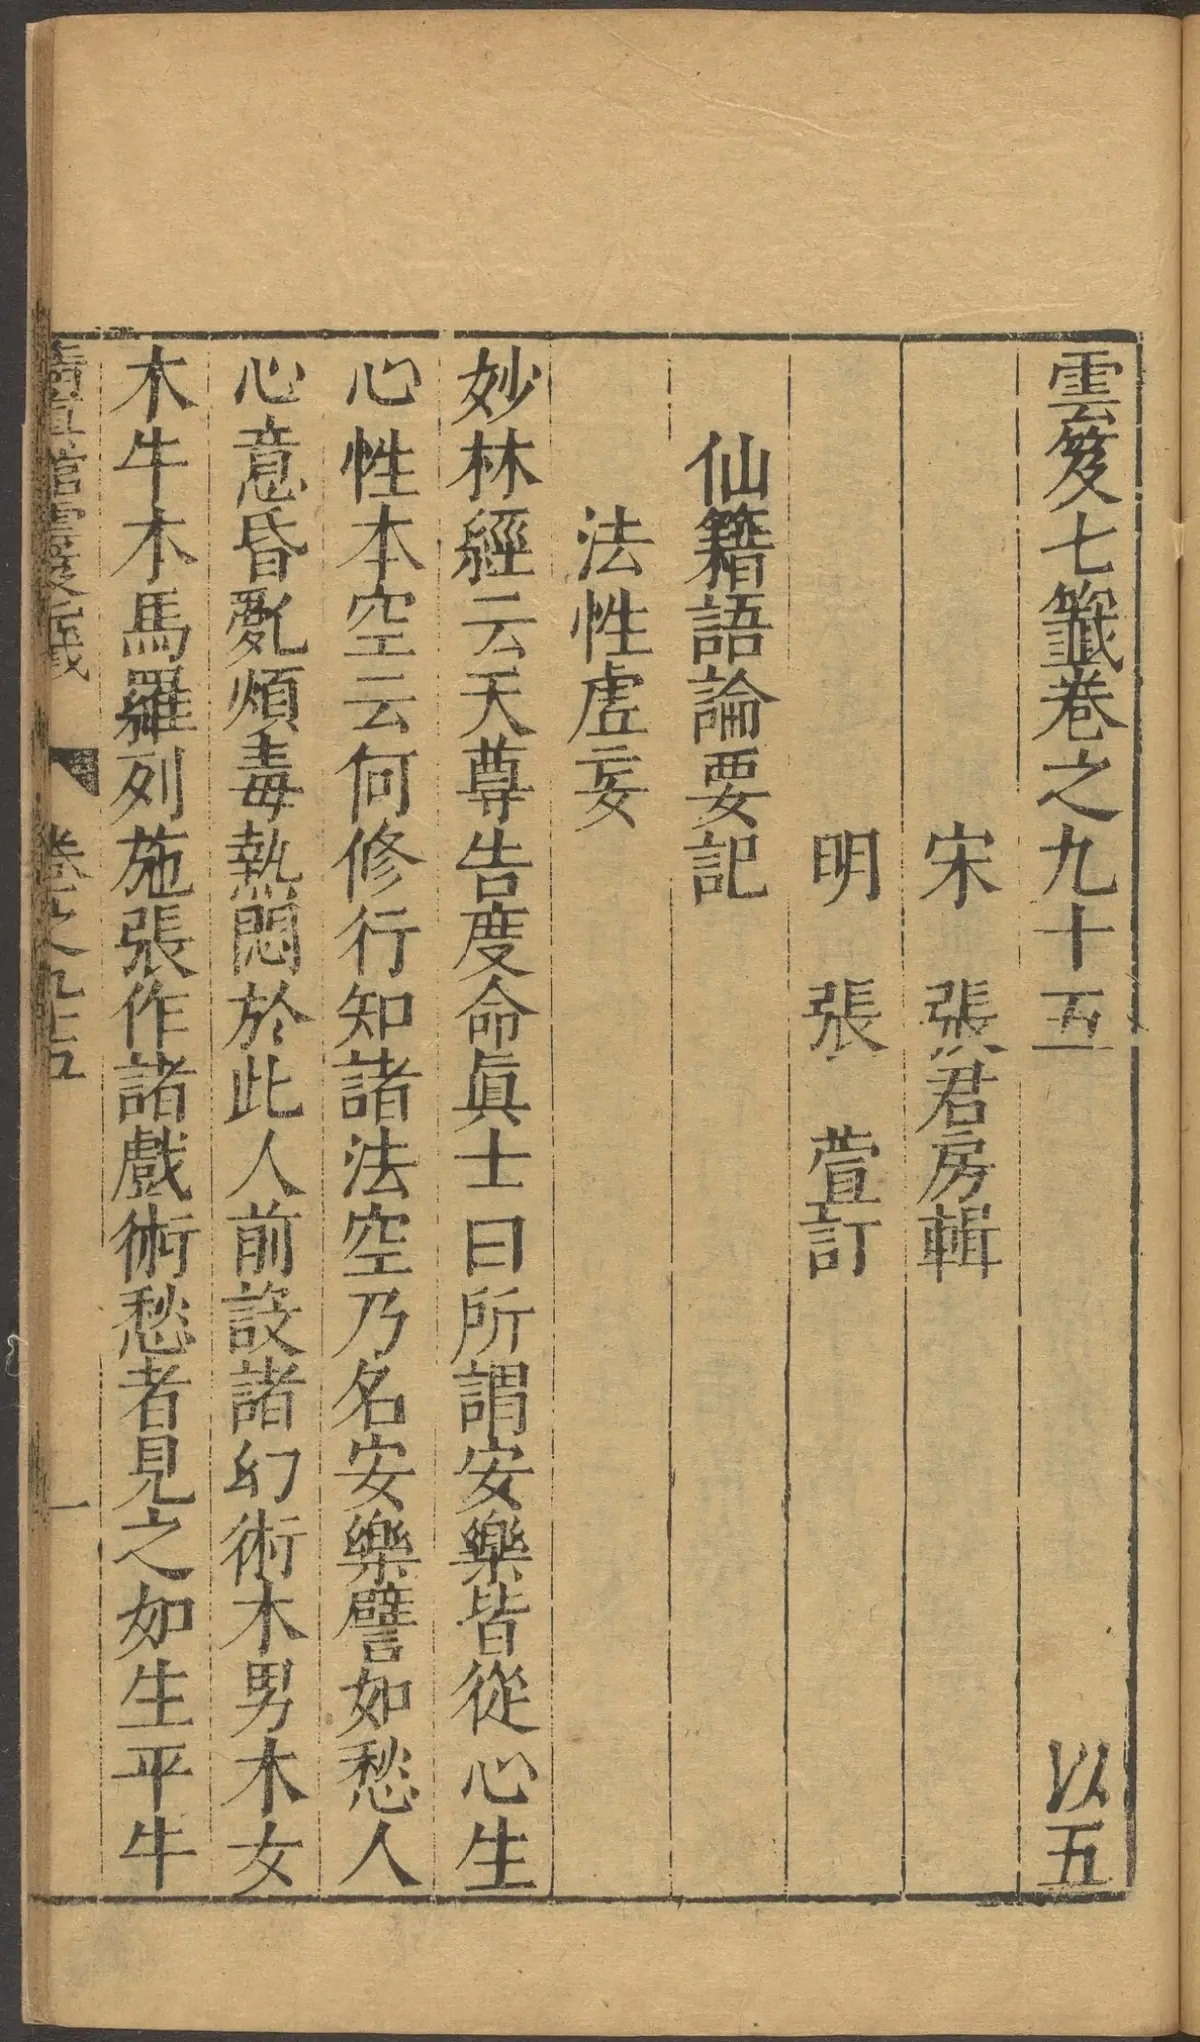 雲笈七籤卷之九十五 以五
宋 張君房輯
明 張 萱訂
仙籍語論要記
法性虛妄
妙林經云天尊告度命眞士曰所謂安樂皆從心生
心性本空云何修行知諸法空乃名安樂譬如愁人
心意昏亂煩毒熱悶於此人前設諸幻術木男木女
木牛木馬羅列施張作諸戲術愁者見之如生平牛
清眞館雲笈七籤 卷之九十五 一